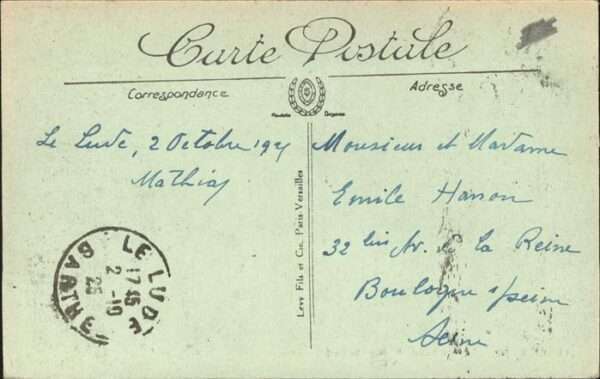 Carte Postale
Correspondance
Adresse
Le Lude, 2 Octobre
Mathias
Monsieur et Madame
Emile
32 bis Av. de la Reine
Boulogne s/seine
Seine
Levy Fils et Cie, Paris-Versailles
LE LUDE
17 45
2 -10
25
SARTHE